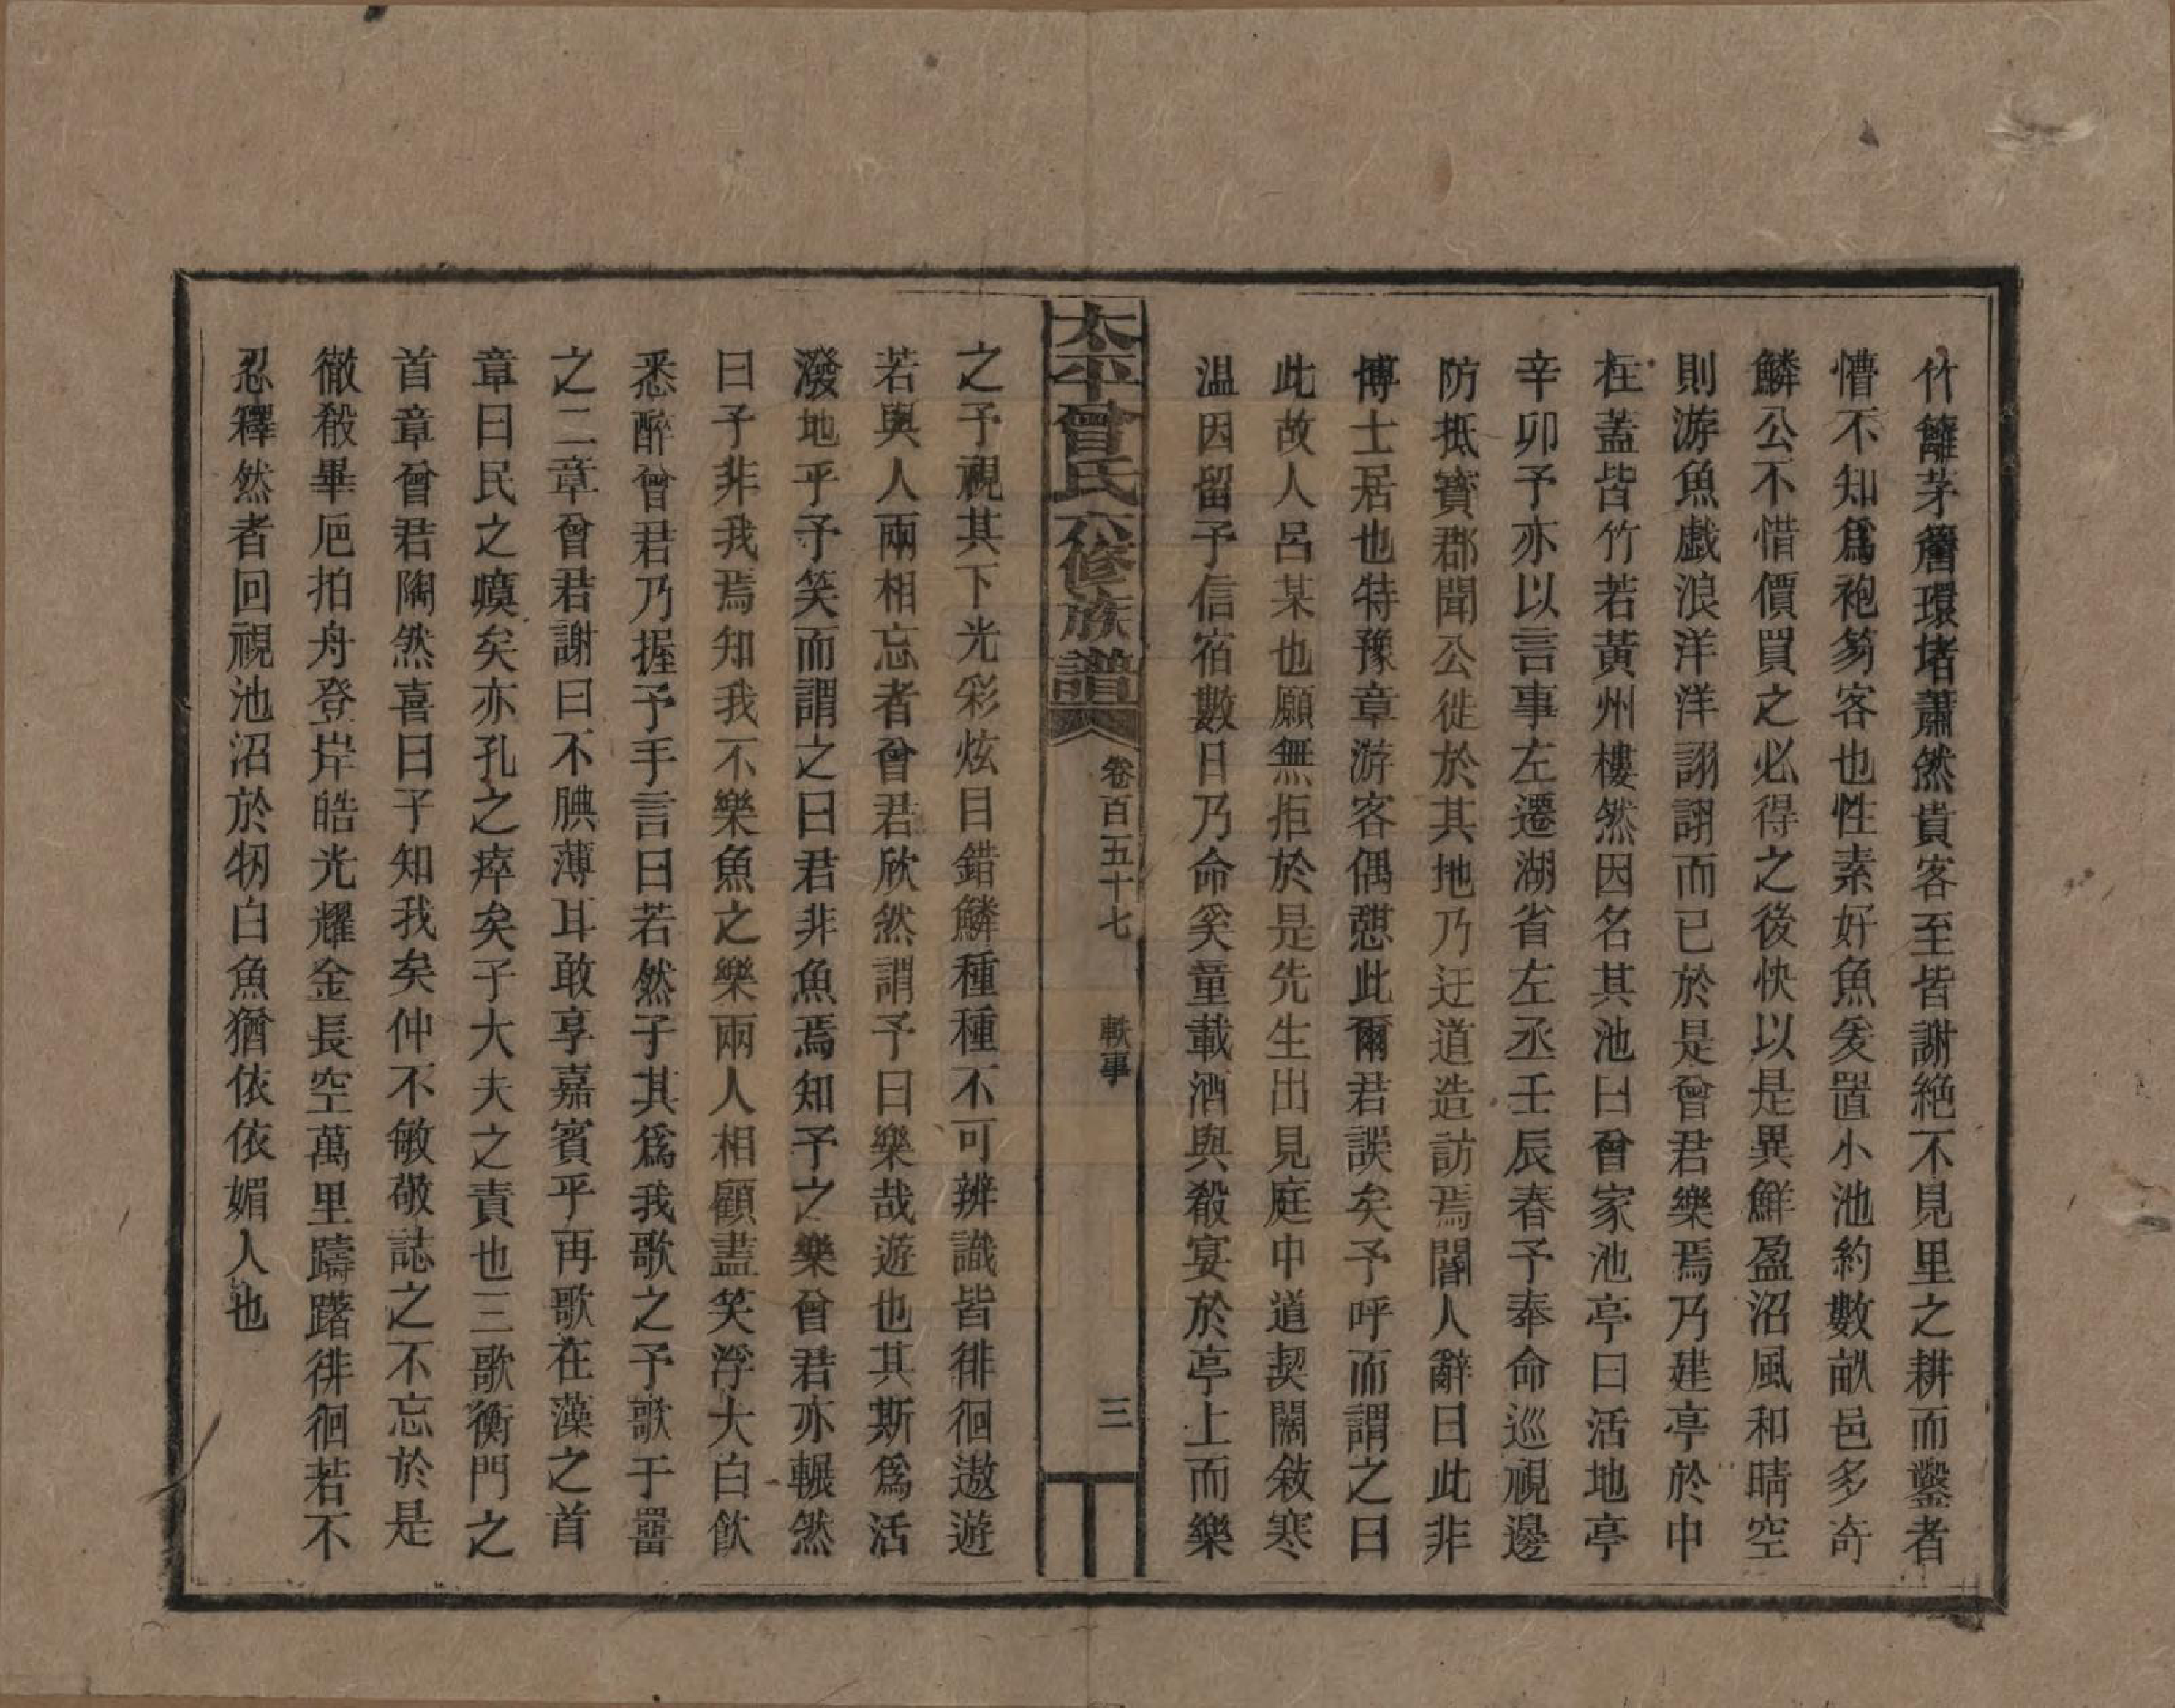 竹籬茅簷環堵蕭然貴客至皆謝絶不見里之耕而鑿者
懵不知爲袍笏客也性素好魚爰置小池約數畝邑多奇
鱗公不惜價買之必得之後快以是異鮮盈沼風和晴空
則游魚戲浪洋洋詡詡而已於是曾君樂焉乃建亭於中
柱蓋皆竹若黃州樓然因名其池曰曾家池亭曰活地亭
辛卯予亦以言事左遷湖省左丞壬辰春予奉命巡視邊
防抵寳郡聞公徙於其地乃迂道造訪焉閽人辭曰此非
博士居也特豫章游客偶憇此爾君誤矣予呼而謂之曰
此故人呂某也願無拒於是先生出見庭中道契濶敘寒
温因留予信宿數日乃命奚童載酒與殽宴於亭上而樂
太平曾氏八修族譜
卷百五十七
軼事
三
之予視其下光彩炫目錯鱗種種不可辨識皆徘徊遨遊
若與人兩相忘者曾君欣然謂予曰樂哉遊也其斯爲活
潑地乎予笑而謂之曰君非魚焉知予之樂曾君亦輾然
曰子非我焉知我不樂魚之樂兩人相顧盡笑浮大白飲
悉醉曾君乃握予手言曰若然子其爲我歌之予歌于罶
之二章曾君謝曰不腆薄耳敢享嘉賓乎再歌在藻之首
章曰民之瘼矣亦孔之瘁矣子大夫之責也三歌衡門之
首章曾君陶然喜曰子知我矣仲不敏敬誌之不忘於是
徹殽畢巵拍舟登岸皓光耀金長空萬里躊躇徘徊若不
忍釋然者回視池沼於牣白魚猶依依媚人也